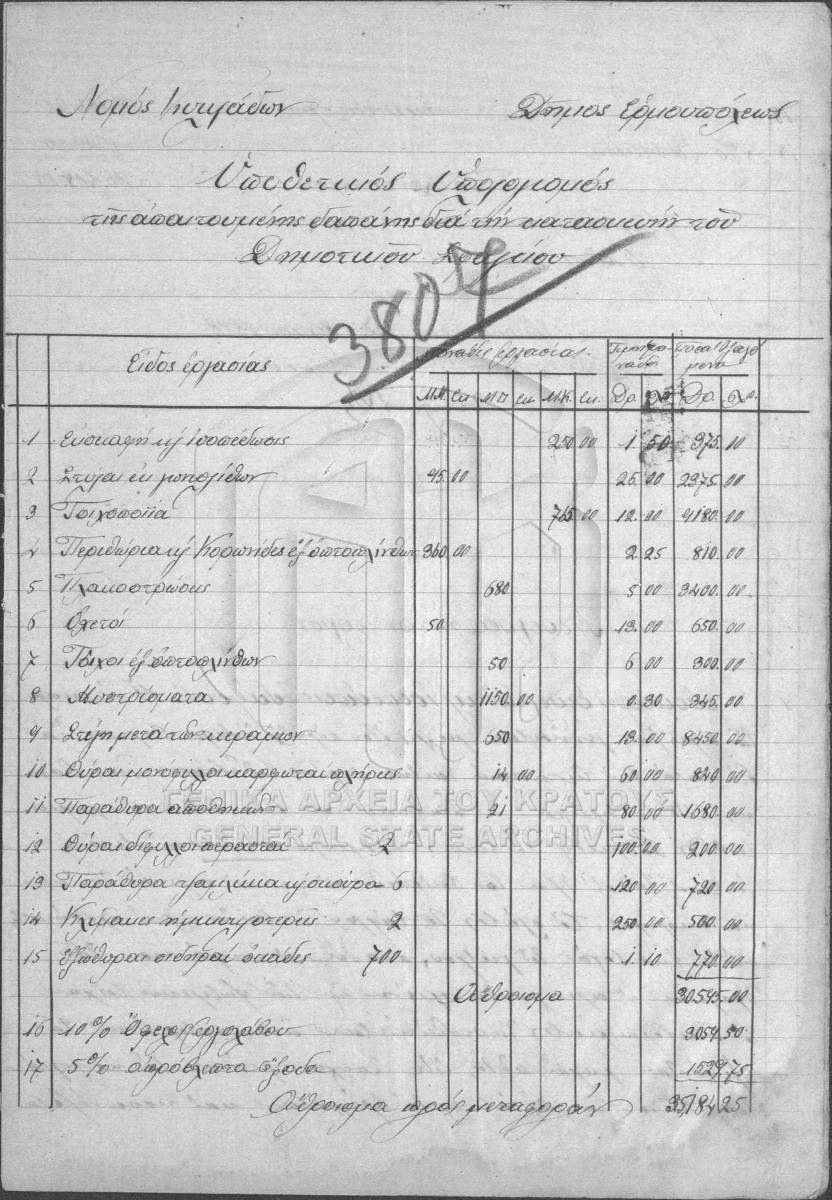 Νομός Κυκλάδων Δῆμος Ἑρμουπόλεως
Ὑποθετικός Ὑπολογισμός
τῆς ἀπαιτουμένης δαπάνης διά τήν κατασκευήν τοῦ
Δημοτικοῦ Σφαγείου
3807
Εἶδος ἐργασίας Μονάδες ἐργασίας Τιμή μονάδος
Μ.Μ. Εκ Μ□ Εκ Μ.Κ. Εκ. Δρ Λεπ Δρ. Λεπ.
1 Ἐκσκαφή κ ἰσοπέδωσις 250.00 1.50 375.00
2 Στύλοι ἐκ μονολίθων 95.00 25.00 2375.00
3 Τοιχοποιΐα 765 00 12.00 9180.00
4 Περιθώρια κ Κορωνίδες ἐξ ὀπτοπλίνθων 360 00 2.25 810.00
5 Πλακοστρώσεις 680 5 00 3400.00
6 Ὀχετοί 50 13.00 650.00
7 Τοῖχοι ἐξ ὀπτοπλίνθων 50 6 00 300.00
8 Μυστρίσματα 1150 00 0.30 345.00
9 Στέγη μετά τῶν κεράμων 650 13.00 8450.00
10 Θύραι μονόφυλλοι καρφωταί πλήρεις 14 00 60 00 840 00
11 Παράθυρα ἀποθήκης 21 80 00 1680.00
12 Θύραι δίφυλλοι περασταί 2 100.00 200.00
13 Παράθυρα τζαμλίκια κ σκοῦρα 6 120 00 720.00
14 Κλίμακες ἡμικυκλοτερεῖς 2 250 00 500.00
15 Ἐξώθυραι σιδηραῖ ὀκάδες 700 1.10 770.00
Ἄθροισμα 30595.00
16 10% Ὄφελος ἐργολάβου 3059.50
17 5% ἀπρόβλεπτα ἔξοδα 1529.75
Ἄθροισμα πρός μεταφοράν 35184 25
ΓΕΝΙΚΑ ΑΡΧΕΙΑ ΤΟΥ ΚΡΑΤΟΥΣ
GENERAL STATE ARCHIVES